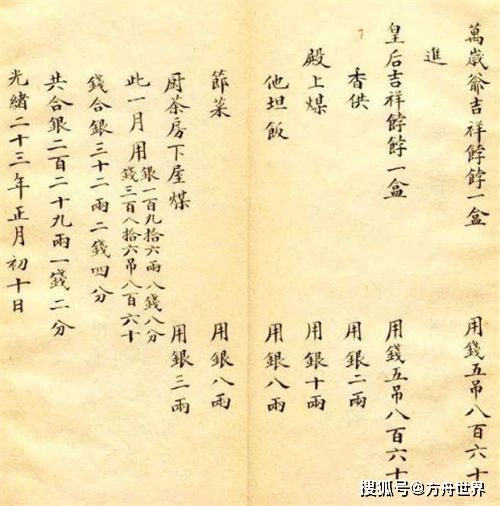 萬歲爺吉祥餑餑一盒 用錢五吊八百六十
進
皇后吉祥餑餑一盒 用錢五吊八百六十
香供 用銀二兩
殿上煤 用銀十兩
他坦飯 用銀八兩
節菜 用銀八兩
厨茶房下屋煤 用銀三兩
此一月用 銀一百九拾六兩八錢八分
錢三百八拾六吊八百六十
錢合銀三十二兩二錢四分
共合銀二百二十九兩一錢二分
光緒二十三年正月初十日
搜狐号@方舟世界